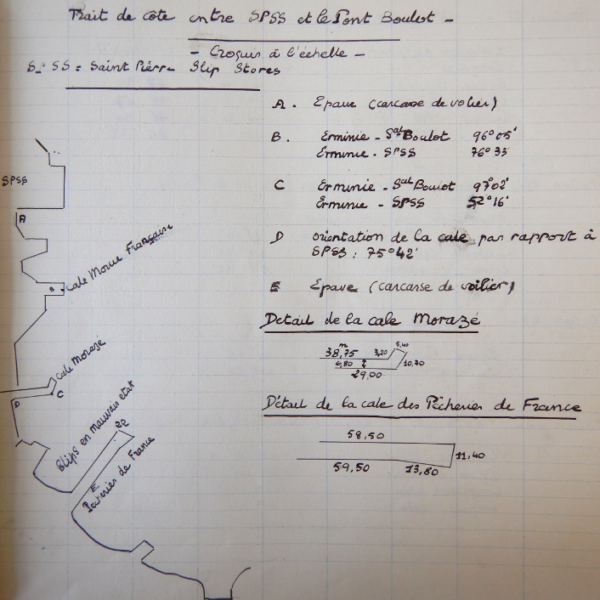 Trait de côte entre SPSS et le Pont Boulot -
- Croquis à l'échelle -
SPSS = Saint Pierre Slip Stores
A. Epave (carcasse de voilier)
B. Erminie - Sal Boulot 96°05'
Erminie - SPSS 76°33'
C Erminie - Sal Boulot 97°02'
Erminie - SPSS 52°16'
D orientation de la cale par rapport à
SPSS : 75°42'
E Epave (carcasse de voilier)
Detail de la cale Morazé
38,75 m 3,20 5,40
6,80 10,70
29,00
Détail de la cale des Pêcheries de France
58,50
11,40
59,50 13,80
SPSS
A
B
Cale Morue Française
Cale Morazé
C
D
Slips en mauvais etat
22
E
Pêcheries de France